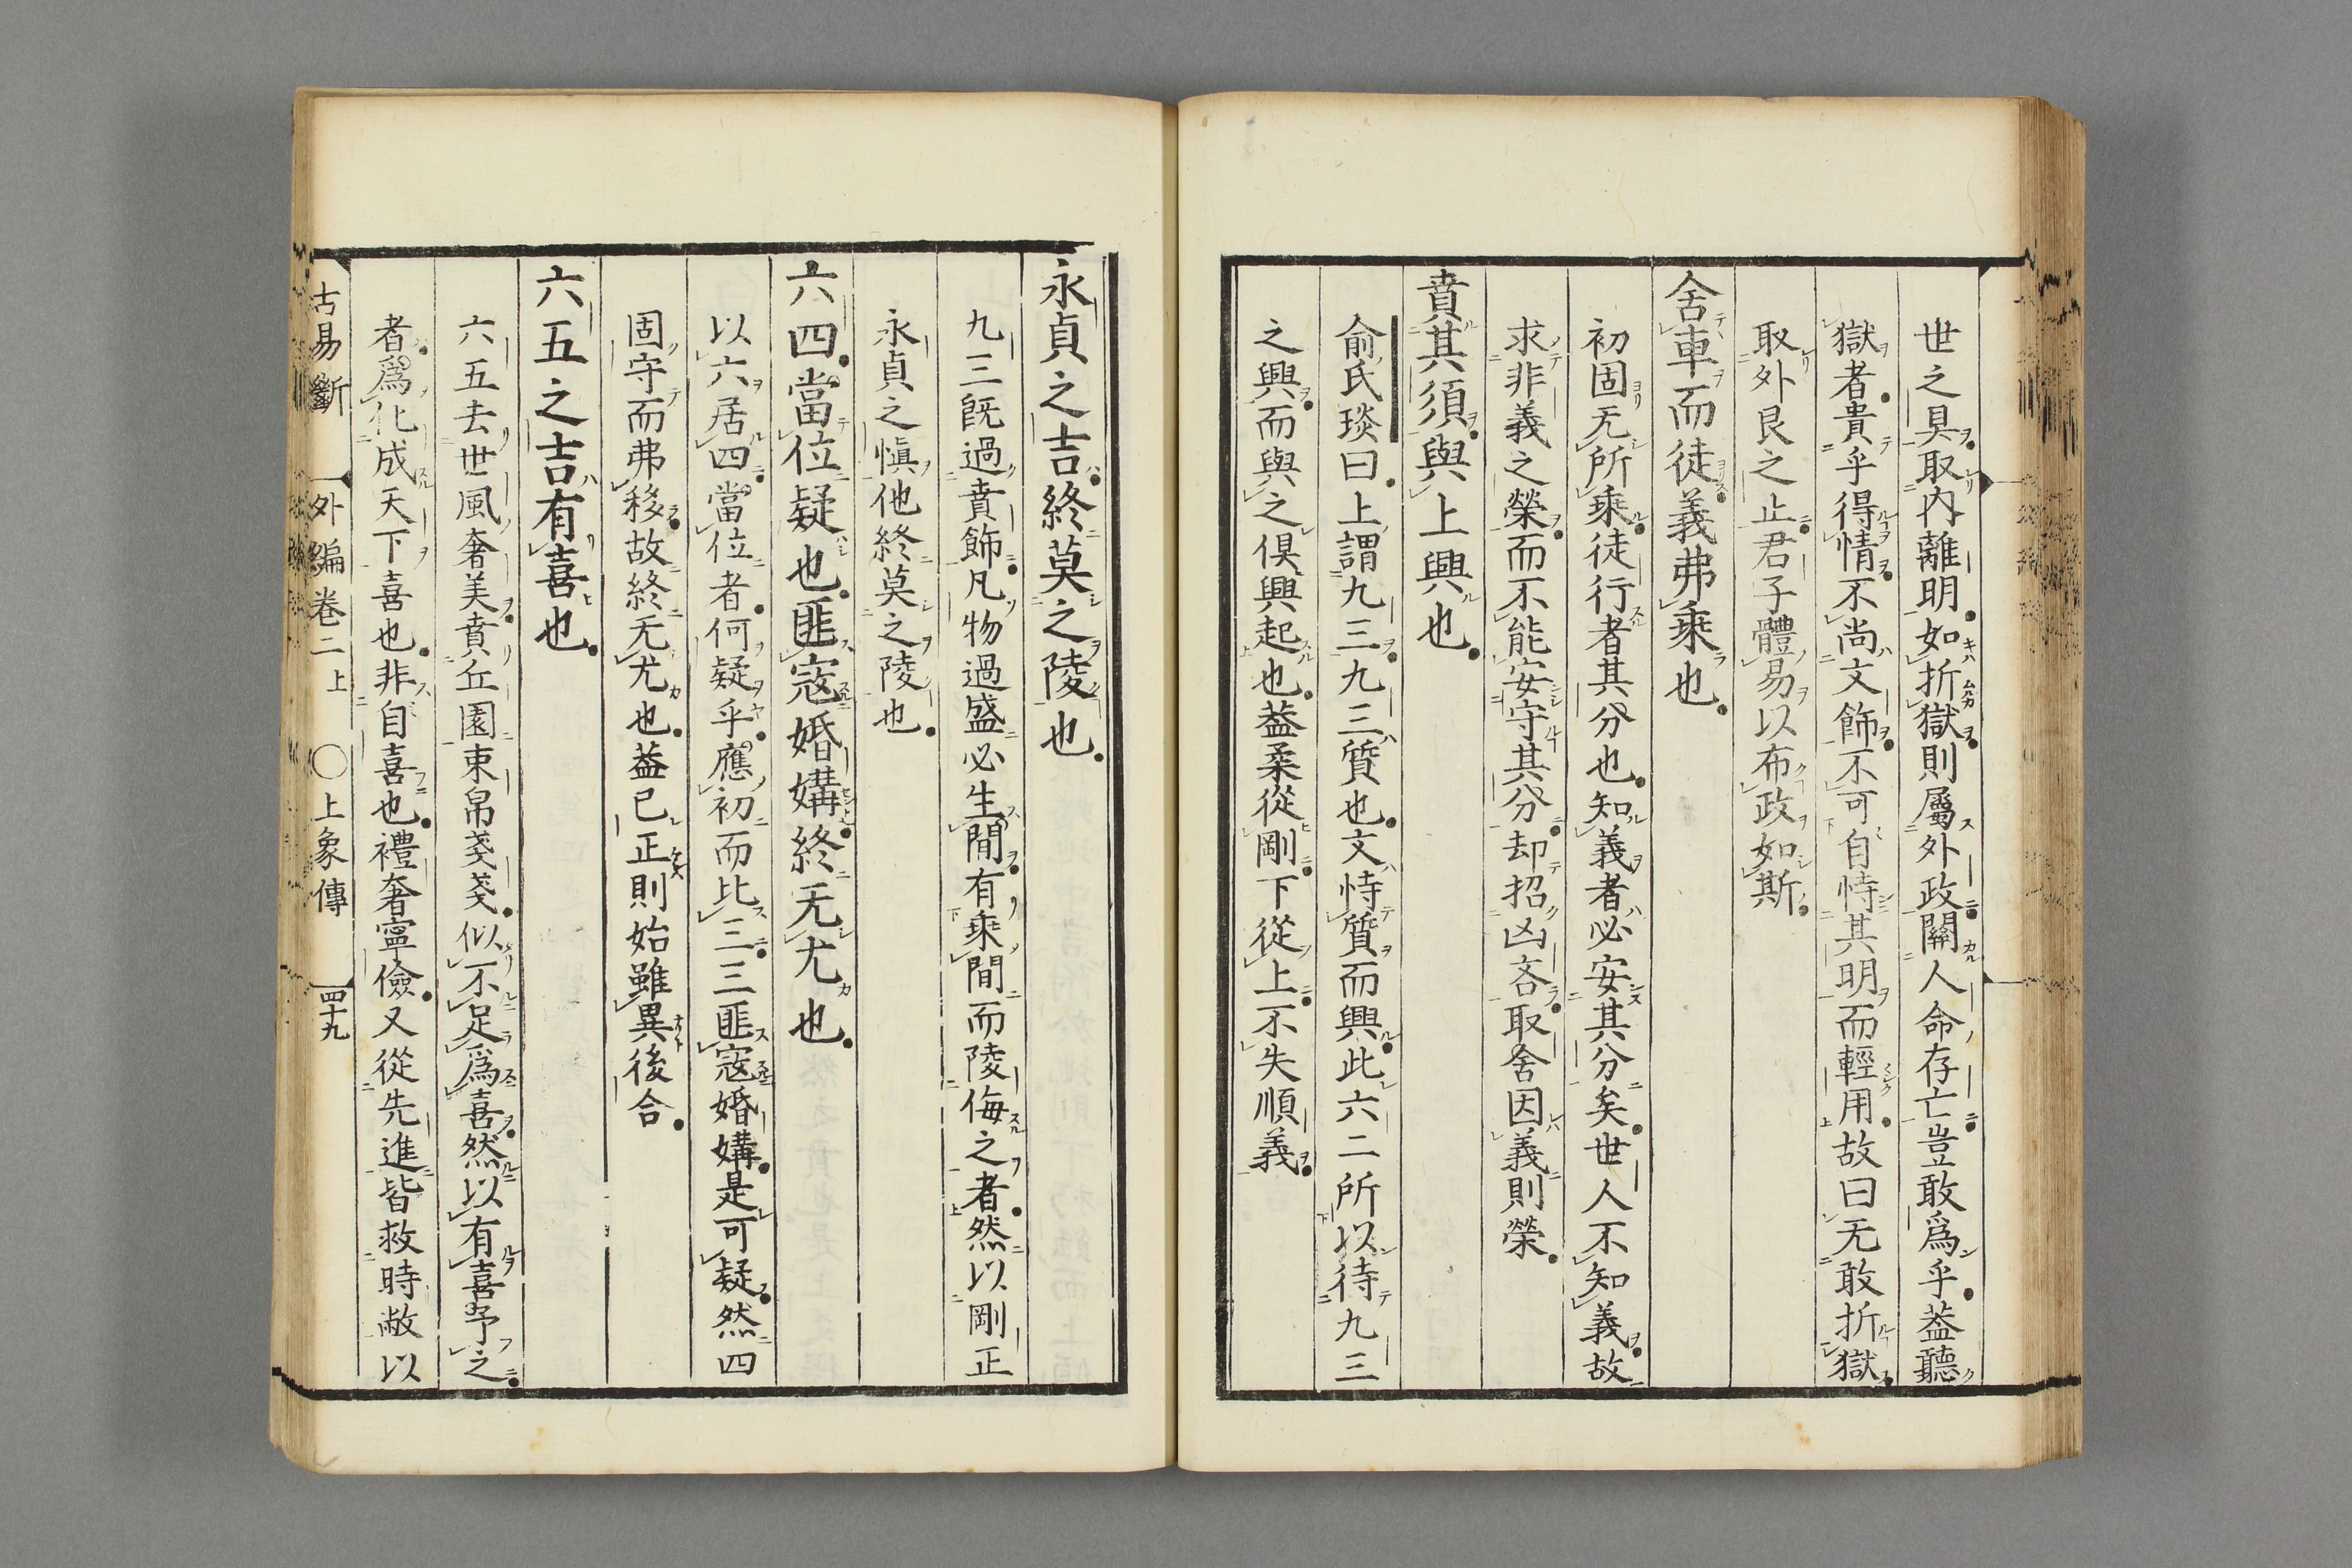 世之具取内離明如折獄則屬外政關人命存亡豈敢爲乎葢聽
獄者貴乎得情不尚文飾不可自恃其明而輕用故曰无敢折獄
取外艮之止君子體易以布政如斯
舍車而徒義弗乘也
初固无所乘徒行者其分也知義者必安其分矣世人不知義故
求非義之榮而不能安守其分却招凶吝取舍因義則榮
賁其須與上興也
俞氏琰曰上謂九三九三質也文恃質而興此六二所以待九三
之興而與之俱興起也葢柔從剛下從上不失順義
永貞之吉終莫之陵也
九三既過賁飾凡物過盛必生間有乘間而陵侮之者然以剛正
永貞之愼他終莫之陵也
六四當位疑也匪寇婚媾終无尤也
以六居四當位者何疑乎應初而比三三匪寇婚媾是可疑然四
固守而弗移故終无尤也葢已正則始雖異後合
六五之吉有喜也
六五去世風奢美賁丘園束帛戔戔似不足爲喜然以有喜予之
者爲化成天下喜也非自喜也禮奢寧儉又從先進皆救時敝以
古易斷 外編卷二上 ○上象傳 四十九